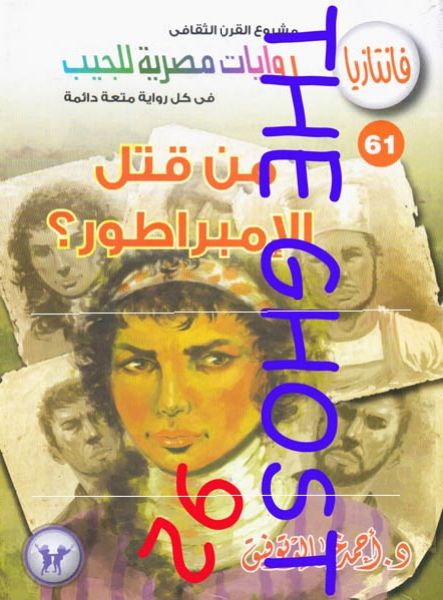 مشروع القرن الثقافى
روايات مصرية للجيب
فى كل رواية متعة دائمة
فانتازيا
61
من قتل
الإمبراطور؟
THE GHOST
د. أحمد خالد توفيق